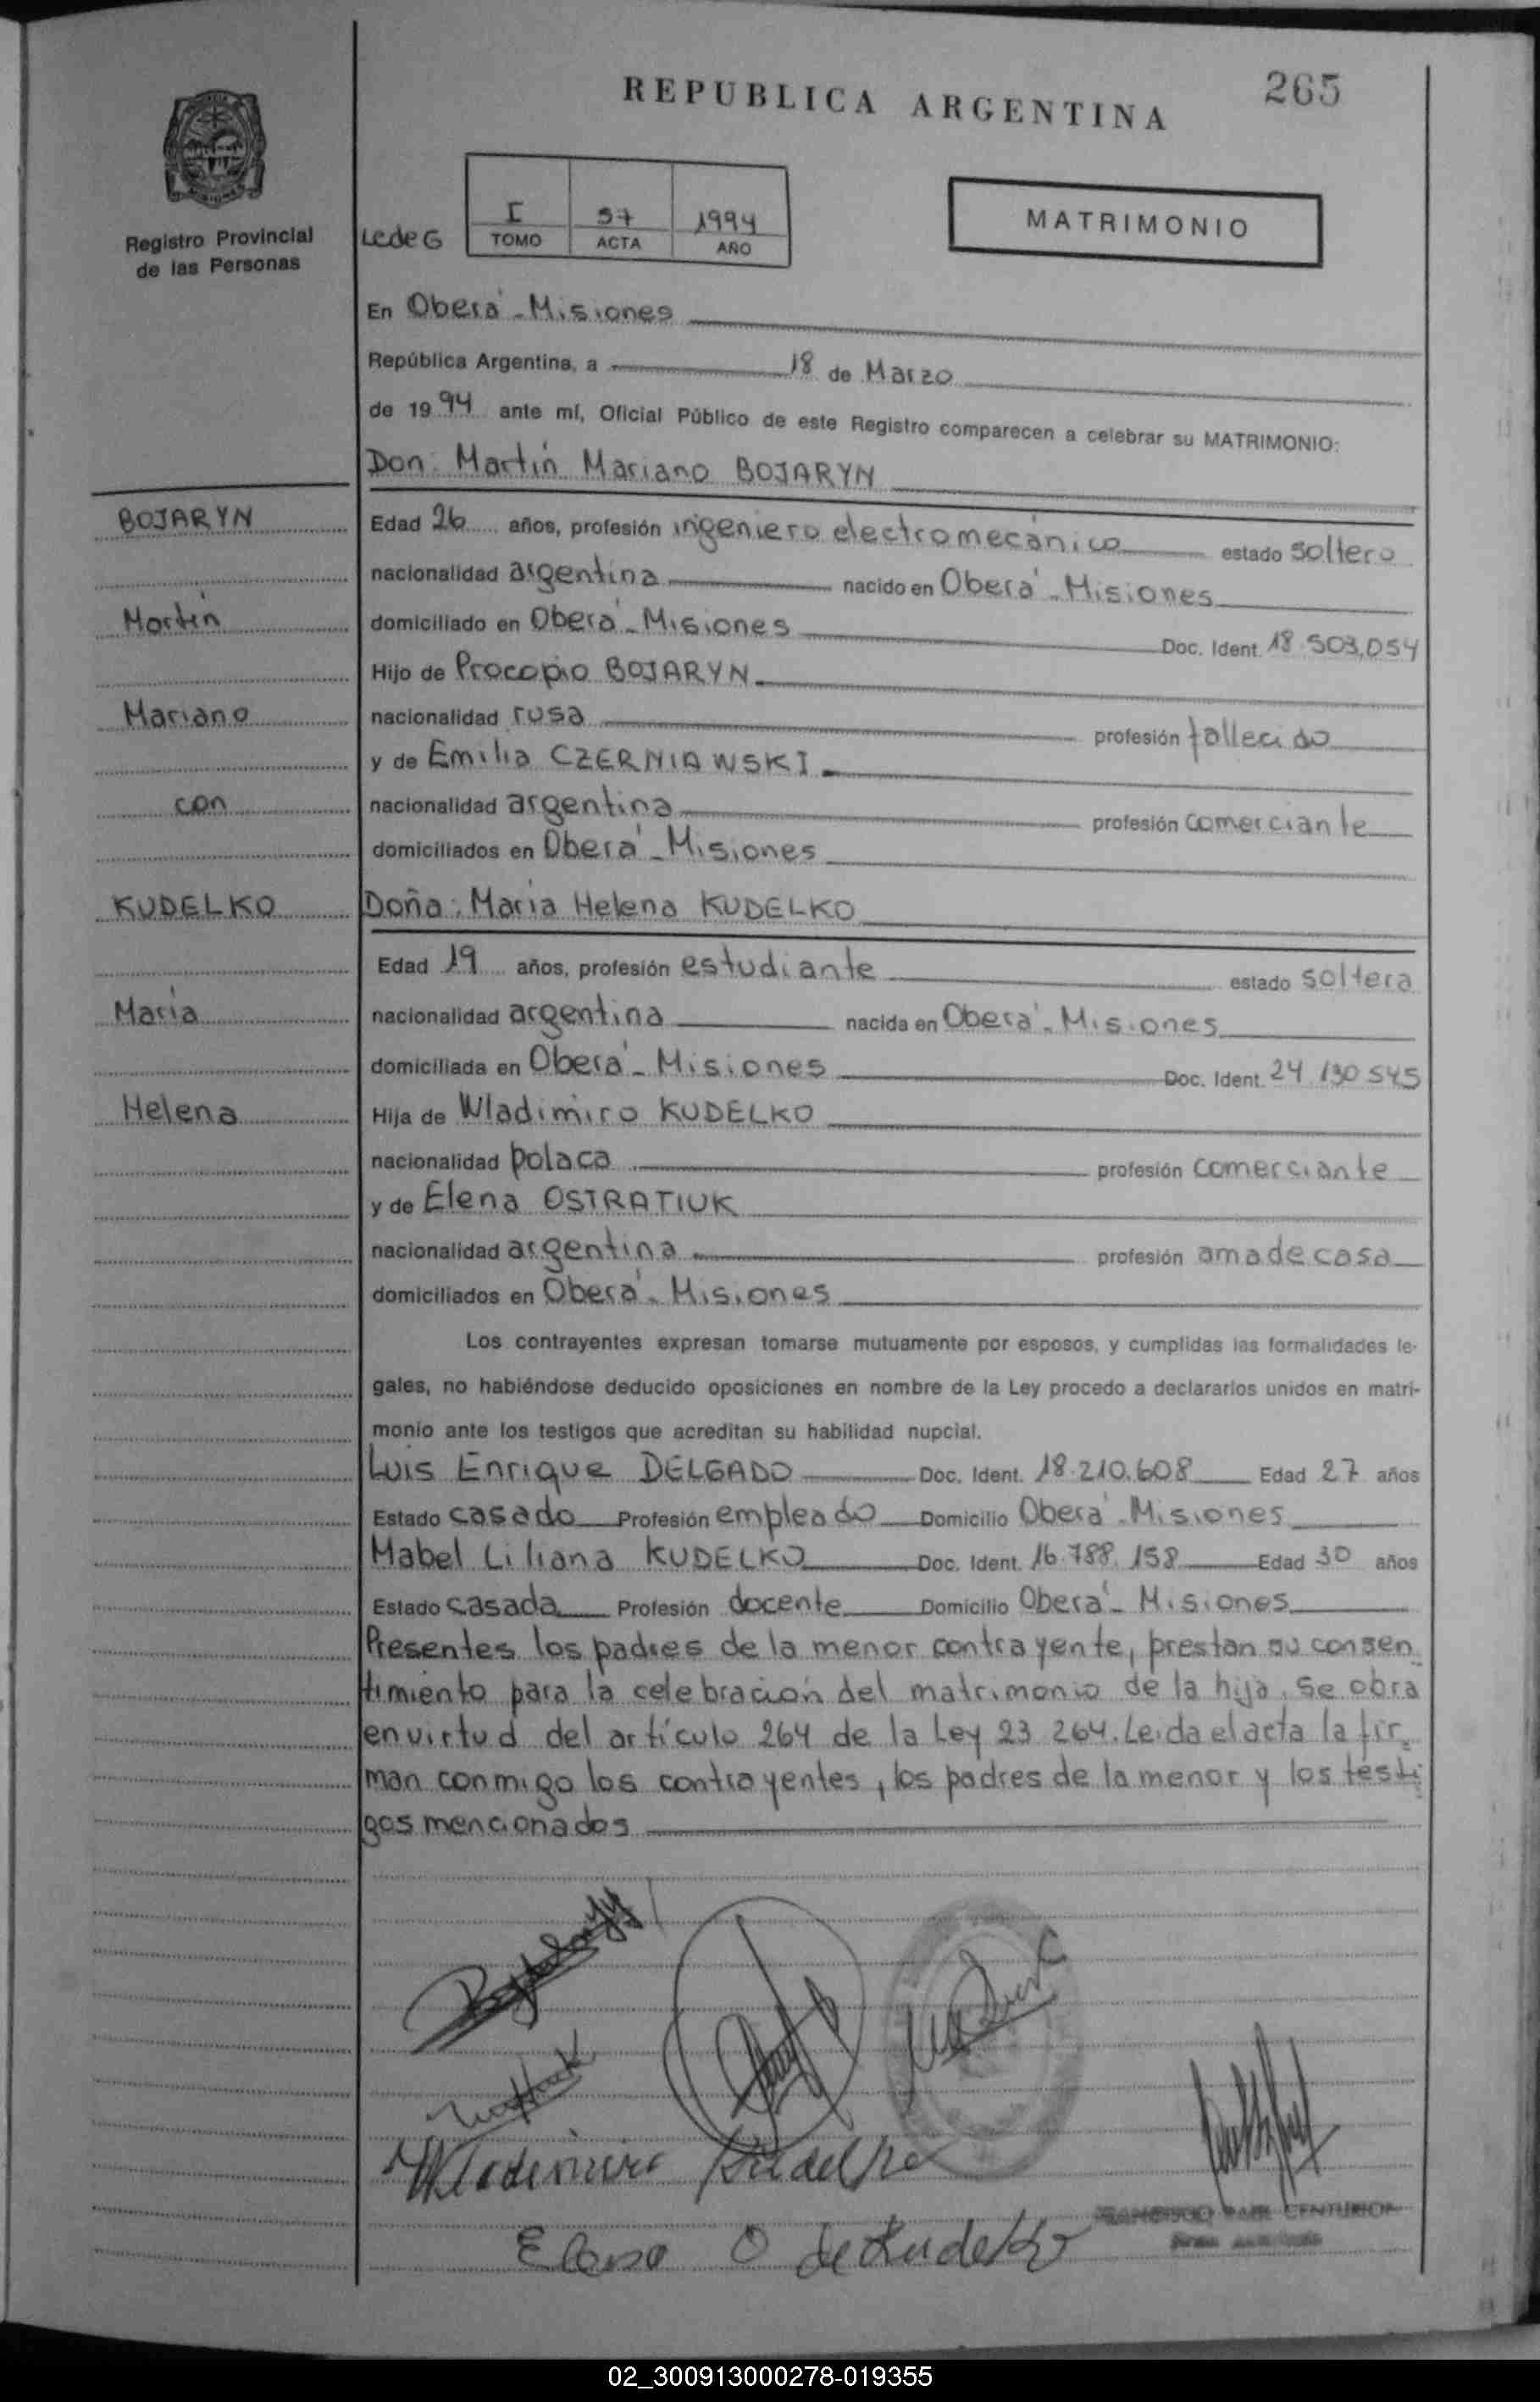 REPUBLICA ARGENTINA
265
Registro Provincial
de las Personas
LedeG
I
57
1994
TOMO
ACTA
AÑO
MATRIMONIO
En Oberá - Misiones
República Argentina, a 18 de Marzo
de 1994 ante mí, Oficial Público de este Registro comparecen a celebrar su MATRIMONIO:
Don: Martín Mariano BOJARYN
BOJARYN
Edad 26 años, profesión ingeniero electromecánico estado soltero
nacionalidad argentina nacido en Oberá - Misiones
Martín
domiciliado en Oberá - Misiones Doc. Ident. 18.503.054
Hijo de Procopio BOJARYN
Mariano
nacionalidad rusa profesión fallecido
y de Emilia CZERNIAWSKI
con
nacionalidad argentina profesión comerciante
domiciliados en Oberá - Misiones
KUDELKO
Doña: María Helena KUDELKO
Edad 19 años, profesión estudiante estado soltera
María
nacionalidad argentina nacida en Oberá - Misiones
domiciliada en Oberá - Misiones Doc. Ident. 24.130.545
Helena
Hija de Wladimiro KUDELKO
nacionalidad polaca profesión comerciante
y de Elena OSTRATIUK
nacionalidad argentina profesión ama de casa
domiciliados en Oberá - Misiones
Los contrayentes expresan tomarse mutuamente por esposos, y cumplidas las formalidades le-
gales, no habiéndose deducido oposiciones en nombre de la Ley procedo a declararlos unidos en matri-
monio ante los testigos que acreditan su habilidad nupcial.
Luis Enrique DELGADO Doc. Ident. 18.210.608 Edad 27 años
Estado casado Profesión empleado Domicilio Oberá - Misiones
Mabel Liliana KUDELKO Doc. Ident. 16.788.158 Edad 30 años
Estado casada Profesión docente Domicilio Oberá - Misiones
Presentes los padres de la menor contrayente, prestan su consen
timiento para la celebración del matrimonio de la hija. Se obra
en virtud del artículo 264 de la Ley 23.264. Leida el acta la fir-
man conmigo los contrayentes, los padres de la menor y los testi
gos mencionados
Wladimiro Kudelko
Elena O de Kudelko
CENTURION
02_300913000278-019355